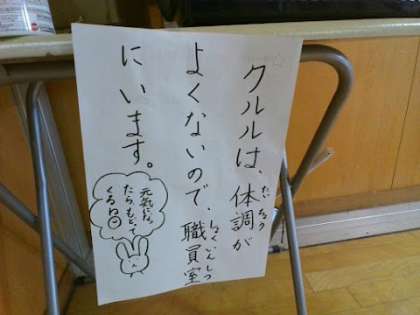 クルルは、体調が
たいちょう
よくないので、職員室
しょくいんしつ
にいます。
元気になっ
たらもどって
くるね